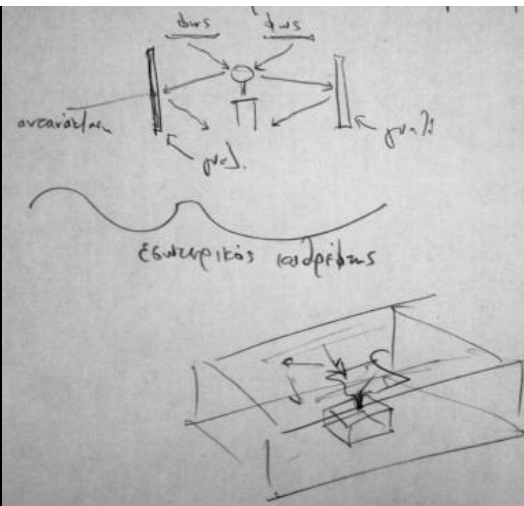 φως φως
αντανάκλαση
γυαλ.
γυαλί
εσωτερικός καθρέφτης